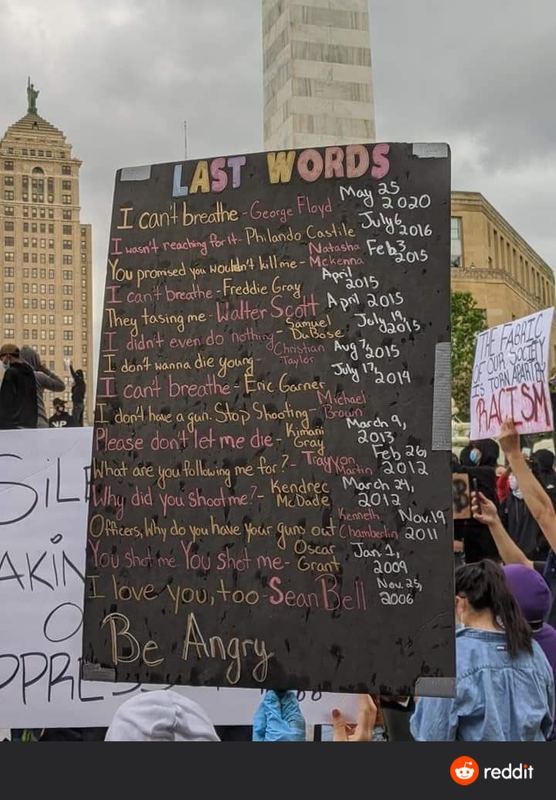 LAST WORDS
I can't breathe - George Floyd May 25 2020
I wasn't reaching for it - Philando Castile July 6 2016
You promised you wouldn't kill me - Natasha Mckenna Feb 3 2015
I can't breathe - Freddie Gray April 2015
They tasing me - Walter Scott April 2015
I didn't even do nothing - Samuel DuBose July 19, 2015
I don't wanna die young - Christian Taylor Aug 7, 2015
I can't breathe - Eric Garner July 17, 2014
I don't have a gun. Stop Shooting - Michael Brown
Please don't let me die - Kimani Gray March 9, 2013
What are you following me for? - Trayvon Martin Feb 26, 2012
Why did you shoot me? - Kendrec McDade March 24, 2012
Officers, Why do you have your guns out Kenneth Chamberlin Nov. 19 2011
You shot me You shot me - Oscar Grant Jan. 1, 2009
I love you, too - Sean Bell Nov. 25, 2006
Be Angry
THE FABRIC
OF OUR SOCIETY
IS TORN APART BY
RACISM
SILE
AKIN
O
PPRESS
reddit